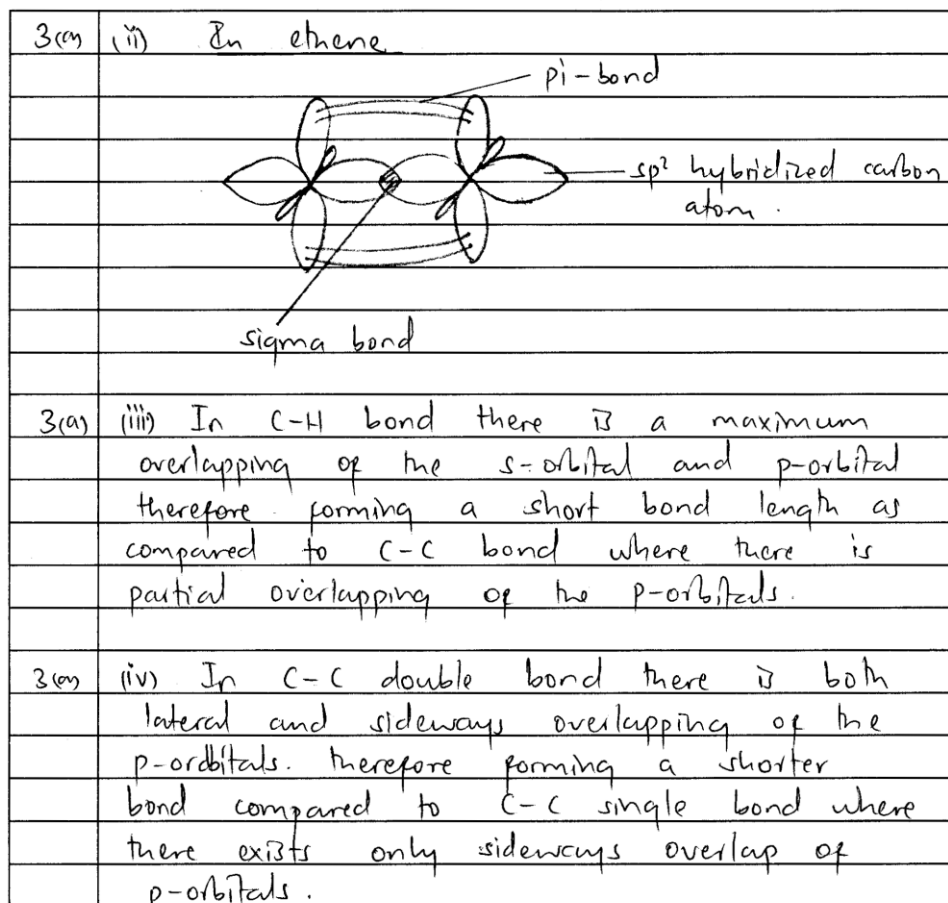 3(a) (ii) In ethene
pi-bond
sp² hybridized carbon
atom.
sigma bond
3(a) (iii) In C-H bond there is a maximum
overlapping of the s-orbital and p-orbital
therefore forming a short bond length as
compared to C-C bond where there is
partial overlapping of the p-orbitals.
3(a) (iv) In C-C double bond there is both
lateral and sideways overlapping of the
p-ordbitals. therefore forming a shorter
bond compared to C-C single bond where
there exists only sideways overlap of
p-orbitals.